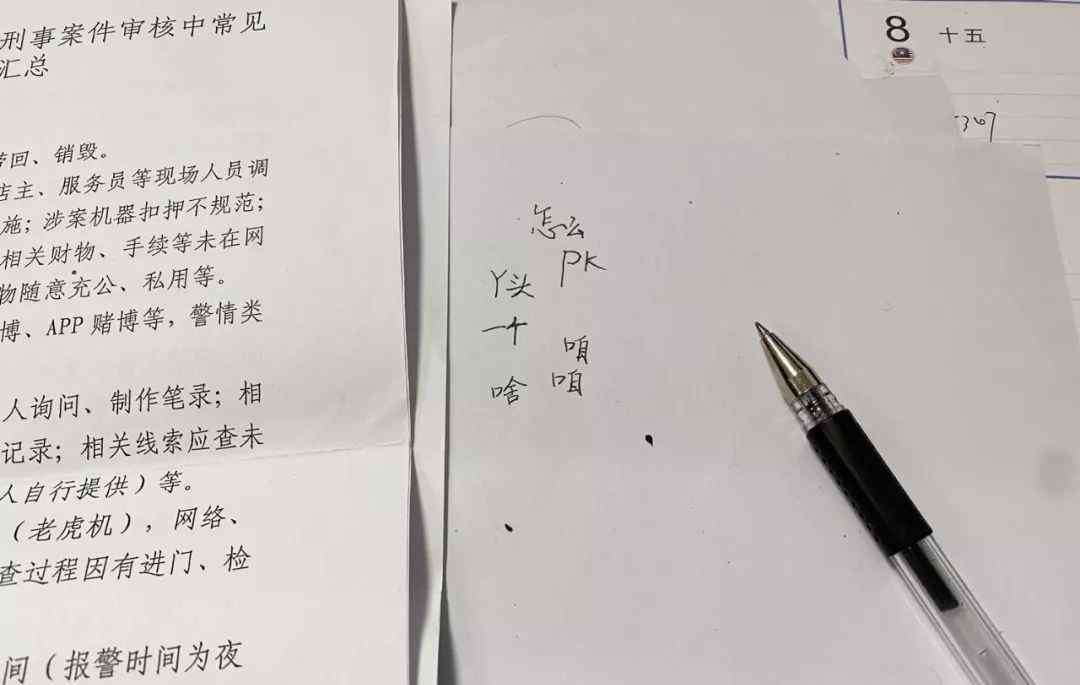 刑事案件审核中常见
汇总
回、销毁。
店主、服务员等现场人员调
施；涉案机器扣押不规范；
相关财物、手续等未在网
物随意充公、私用等。
博、APP 赌博等，警情类
人询问、制作笔录；相
记录；相关线索应查未
人自行提供）等。
（老虎机），网络、
查过程因有进门、检
间（报警时间为夜
怎么
PK
丫头
一个
咱
啥 咱
8 十五
367